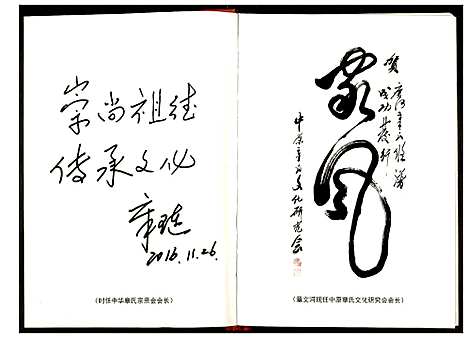 崇尚祖德
传承文化
章琏
2016.11.26.
(时任中华章氏宗亲会会长)
贺
成功发行
家风
中原章氏文化研究会
(章文河现任中原章氏文化研究会会长)